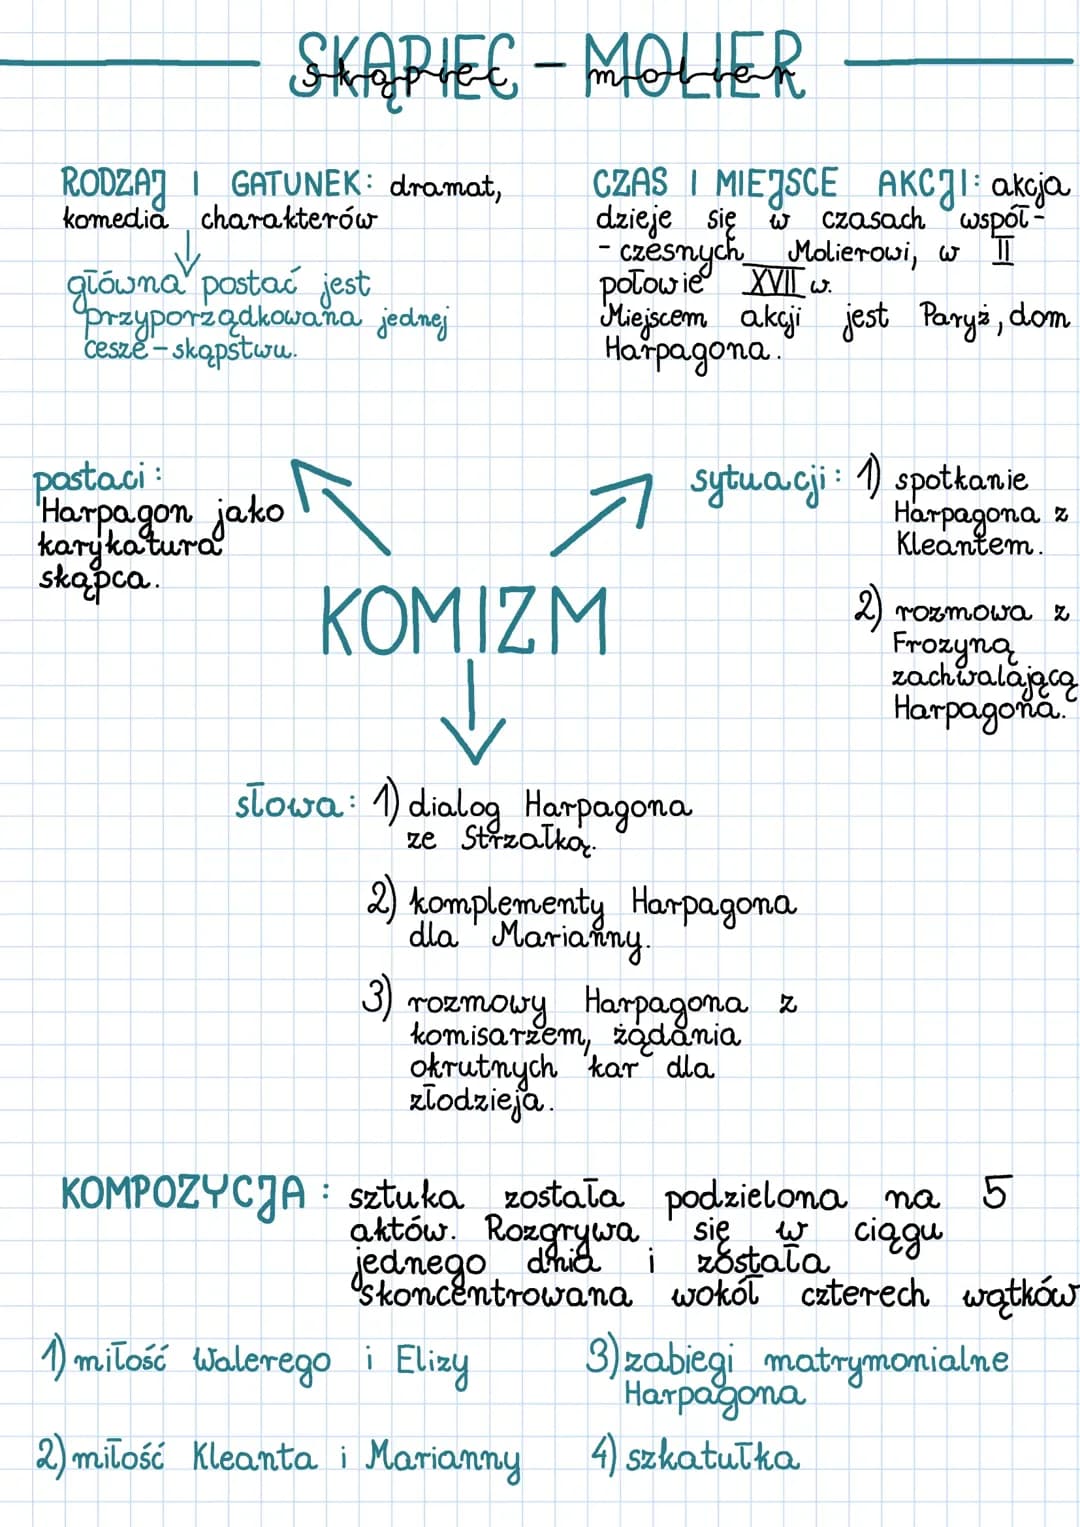 SKĄPIEC - MOLIER
skąpiec molier
RODZAJ I GATUNEK: dramat,
komedia charakterów
główna postać jest
przyporządkowana jednej
cesze - skąpstwu.
CZAS I MIEJSCE AKCJI: akcja
dzieje się w czasach współ-
- czesnych Molierowi, w II
połowie XVII w.
Miejscem akcji jest Paryż, dom
Harpagona.
postaci:
Harpagon jako
karykatura
skąpca.
sytuacji: 1) spotkanie
Harpagona z
Kleantem.
2) rozmowa z
Frozyną
zachwalającą
Harpagona.
KOMIZM
słowa: 1) dialog Harpagona
ze Strzałką.
2) komplementy Harpagona
dla Marianny.
3) rozmowy Harpagona z
komisarzem, żądania
okrutnych kar dla
złodzieja.
KOMPOZYCJA: sztuka została podzielona na 5
aktów. Rozgrywa się w ciągu
jednego dnia i została
skoncentrowana wokół czterech wątków
1) miłość Walerego i Elizy
2) miłość Kleanta i Marianny
3) zabiegi matrymonialne
Harpagona
4) szkatułka